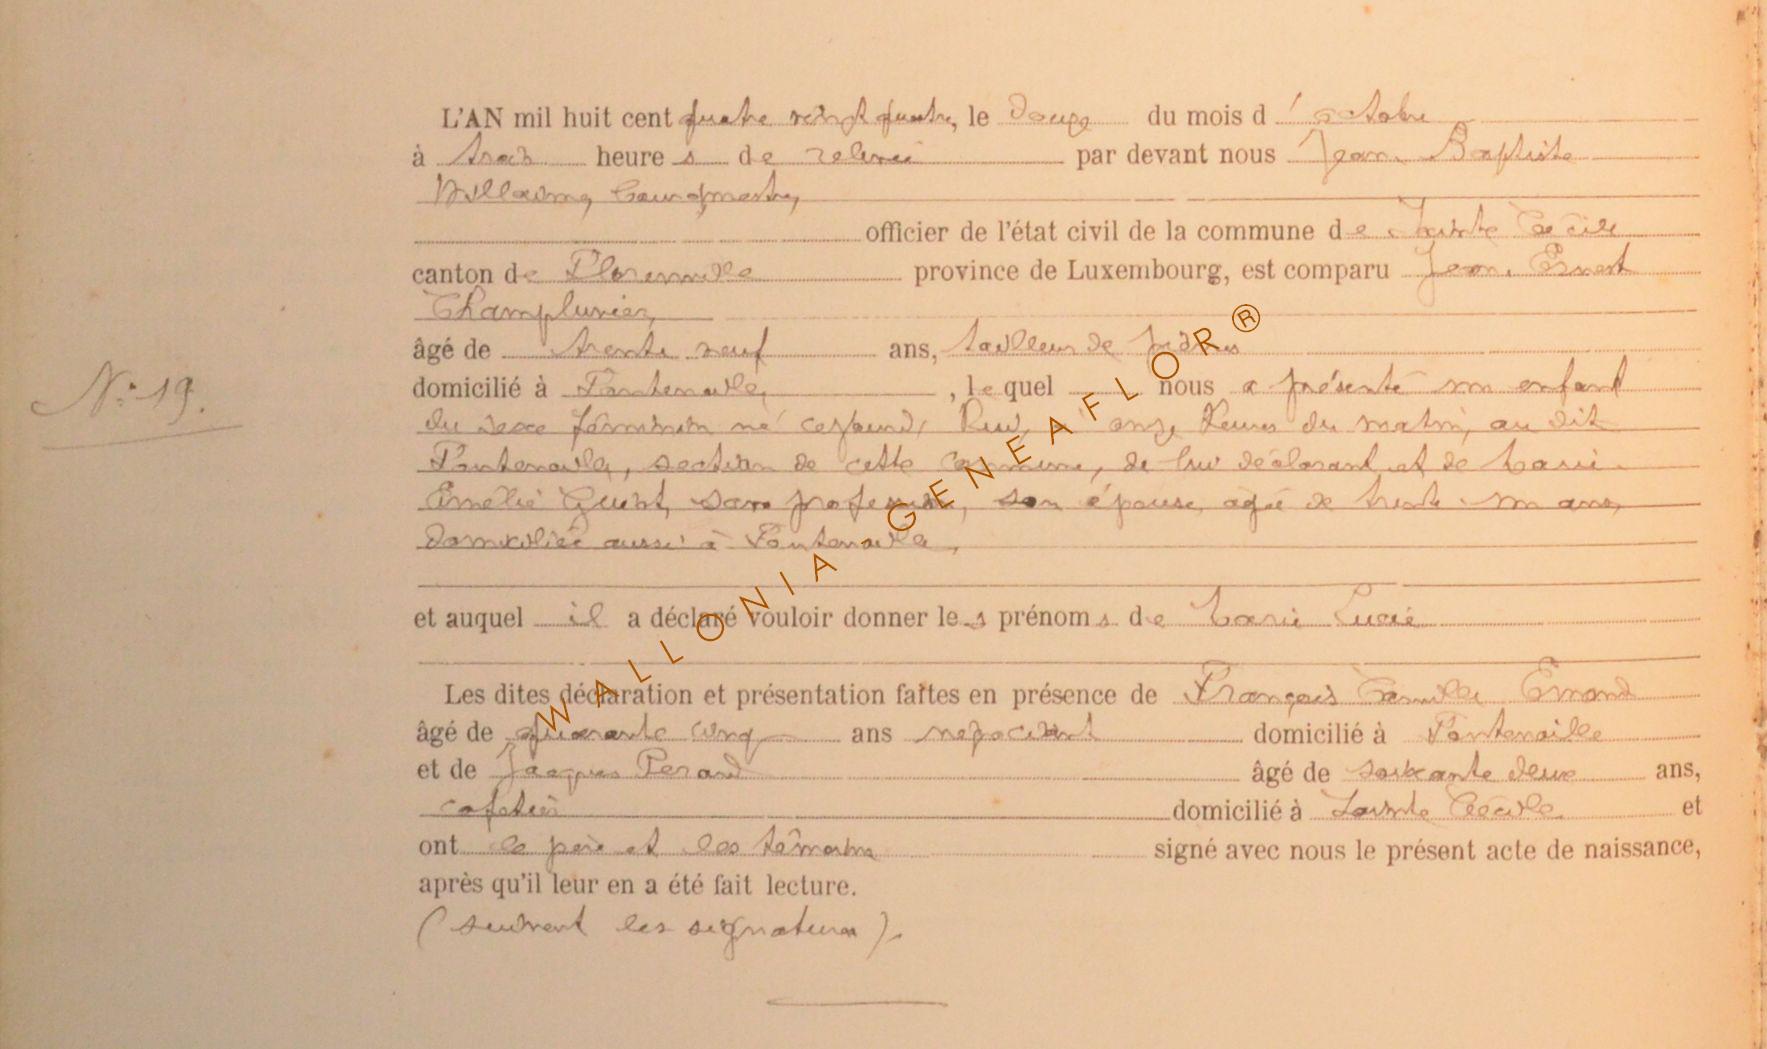 L'AN mil huit cent quatre vingt quatre, le douze du mois d'octobre
à trois heures de relevée par devant nous Jean Baptiste
Willaime, bourgmestre,
officier de l'état civil de la commune de Sainte Cécile
canton de Florenville province de Luxembourg, est comparu Jean Ernest
Champluvier,
âgé de trente neuf ans, tailleur de pierres
domicilié à Fontenoille, lequel nous a présenté un enfant
N° 19.
du sexe féminin né cejourd'hui, à onze heures du matin, au dit
Fontenoille, section de cette commune, de lui déclarant et de Marie
Emélie sans profession, son épouse, agée de trente un ans,
domiciliée aussi à Fontenoille,
et auquel il a déclaré vouloir donner les prénoms de Marie Lucie
Les dites déclaration et présentation faites en présence de François Camille Emond
âgé de quarante cinq ans negociant domicilié à Fontenoille
et de Jacques Perand âgé de soixante deux ans,
cafetier domicilié à Sainte Cécile et
ont le père et les témoins signé avec nous le présent acte de naissance,
après qu'il leur en a été fait lecture.
(suivent les signatures).
WALLONIA GENEAFLOR®